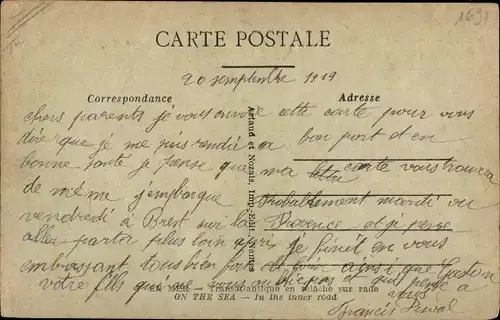 1691
CARTE POSTALE
20 semptembre 1919
Correspondance
Adresse
chers parents je vous envoie cette carte pour vous
dire que je me suis rendu a bon port et en
bonne sante je pense que ma carte vous trouvera
lettre
de même j'embarque Probablement mardi ou
vendredi à Brest sur la Provence et je pense
aller plus loin après je finit en vous
embrassant tous bien fort de loin ainsi que Gaston
votre fils qui ne vous oublie pas et qui pense a
vous
Francis Duval
Artaud et Nozais, Imp.-Edit., Nantes
EN MER — Transatlantique en relâche sur rade
ON THE SEA — In the inner road